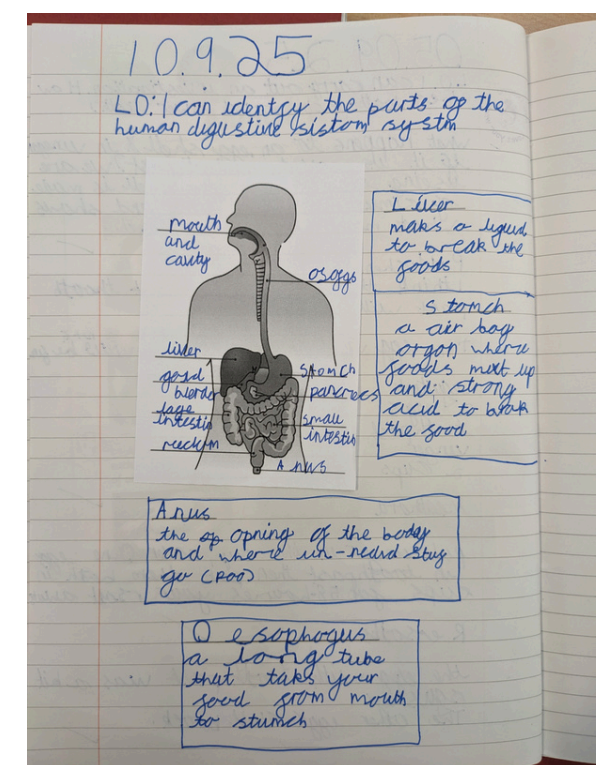 10.9.25
LO: I can identfy the parts of the
human digustive sistom systm
mouth
and
cavity
osoggs
liver
gold
blerder
lage
intestin
reeckem
Stomch
pancrecs
small
intestin
Anus
Liver
maks a liguid
to break the
foods
Stomch
a air bag
orgon where
foods mixt up
and strong
acid to break
the food
Anus
the op opning of the boday
and where un-nedid stuf
go (poo)
O esophogus
a long tube
that taks your
food from mouth
to stumch